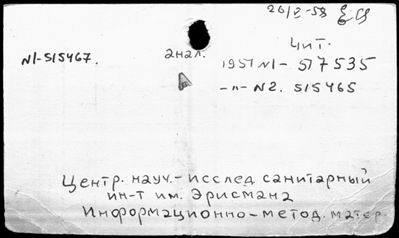 26/V-58
Чит.
N1-515467. анал. 1951 N1- 517535
-"- N2. 515465
Центр. науч.-исслед санитарный
ин-т им. Эрисмана
Информационно-метод. матер.